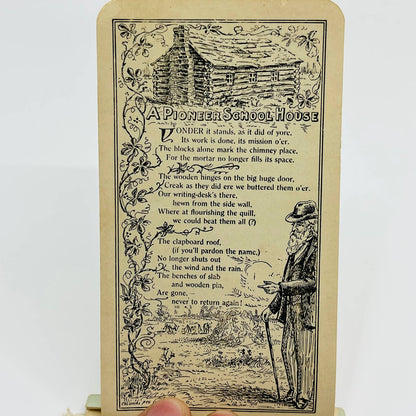 A PIONEER SCHOOL HOUSE
YONDER it stands, as it did of yore,
Its work is done, its mission o'er.
The blocks alone mark the chimney place,
For the mortar no longer fills its space.
The wooden hinges on the big huge door,
Creak as they did ere we buttered them o'er.
Our writing-desk's there,
hewn from the side wall,
Where at flourishing the quill,
we could beat them all (?)
The clapboard roof,
(if you'll pardon the name,)
No longer shuts out
the wind and the rain.
The benches of slab
and wooden pin,
Are gone,
never to return again!